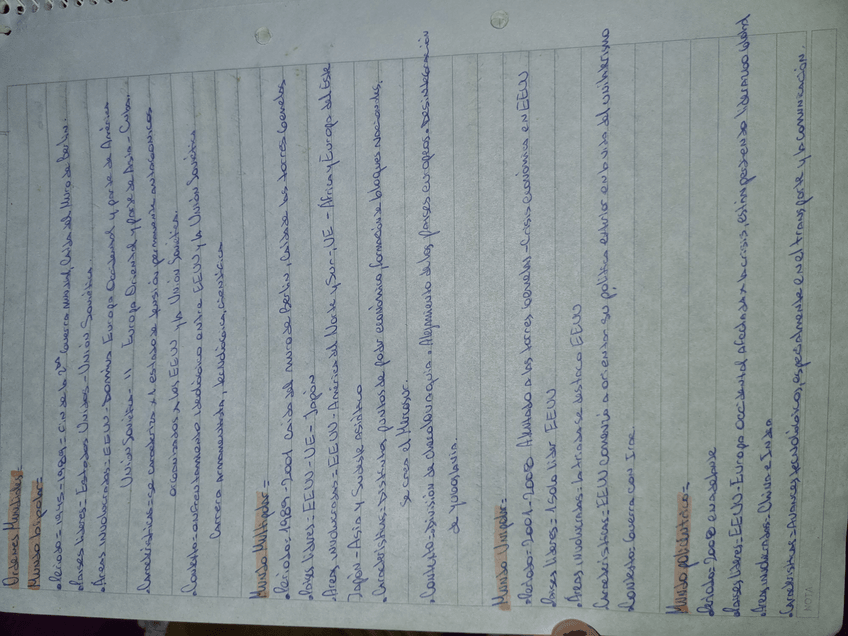 Ordenes Mundiales
Mundo bipolar=
• Período= 1945-1989= Fin de la 2da Guerra mundial, Caida del Muro de Berlin.
• Paises lideres= Estados Unidos - Unión Soviética.
• Areas involucradas= EEUU - Domina Europa Occidental y parte de América
Unión Soviética - 11 Europa Oriental y parte de Asia - Cuba.
Características= se caracteriza x el estado de tensión permanente antagonicos
a los EEUU y la Unión Soviética.
• Contexto= enfrentamiento ideológico entre EEUU y la Unión Soviética
Carrera armamentista, tecnológica, cientifica
Mundo Multipolar=
• Período= 1989-2001 Caida del muro de Berlin, Caida de las torres gemelas
• Paises líderes= EEUU - UE - Japón
• Areas involucradas= EEUU - América del Norte y Sur -, UE - Africa y Europa del Este
Japón - Asia y Sudeste asiático
• Características= Distintos puntos de poder económico, formación de bloques nacionales,
se crea el Mercosur.
• Contexto= División de checoslovaquia • Alejamiento de los paises europeos • Desintegración
de yugoslavia.
Mundo Unipolar=
• Período= 2001-2008 Atentado a las torres gemelas - Crisis económica en EEUU
Paises lideres= 1 solo lider EEUU
• Areas involucradas= la traba se destaco EEUU
Características= EEUU comienza a orientar su política exterior en busca del unilateralismo
Contexto= Guerra con Irac.
Mundo policéntrico=
Período= 2008 en adelante
Paises líderes= EEUU - Europa occidental afectada x la crisis, estan perdiendo liderazgo
Areas involucradas= China e India
• Características= Avances tecnológicos, especialmente en el transporte y la comunicación.
NOTA